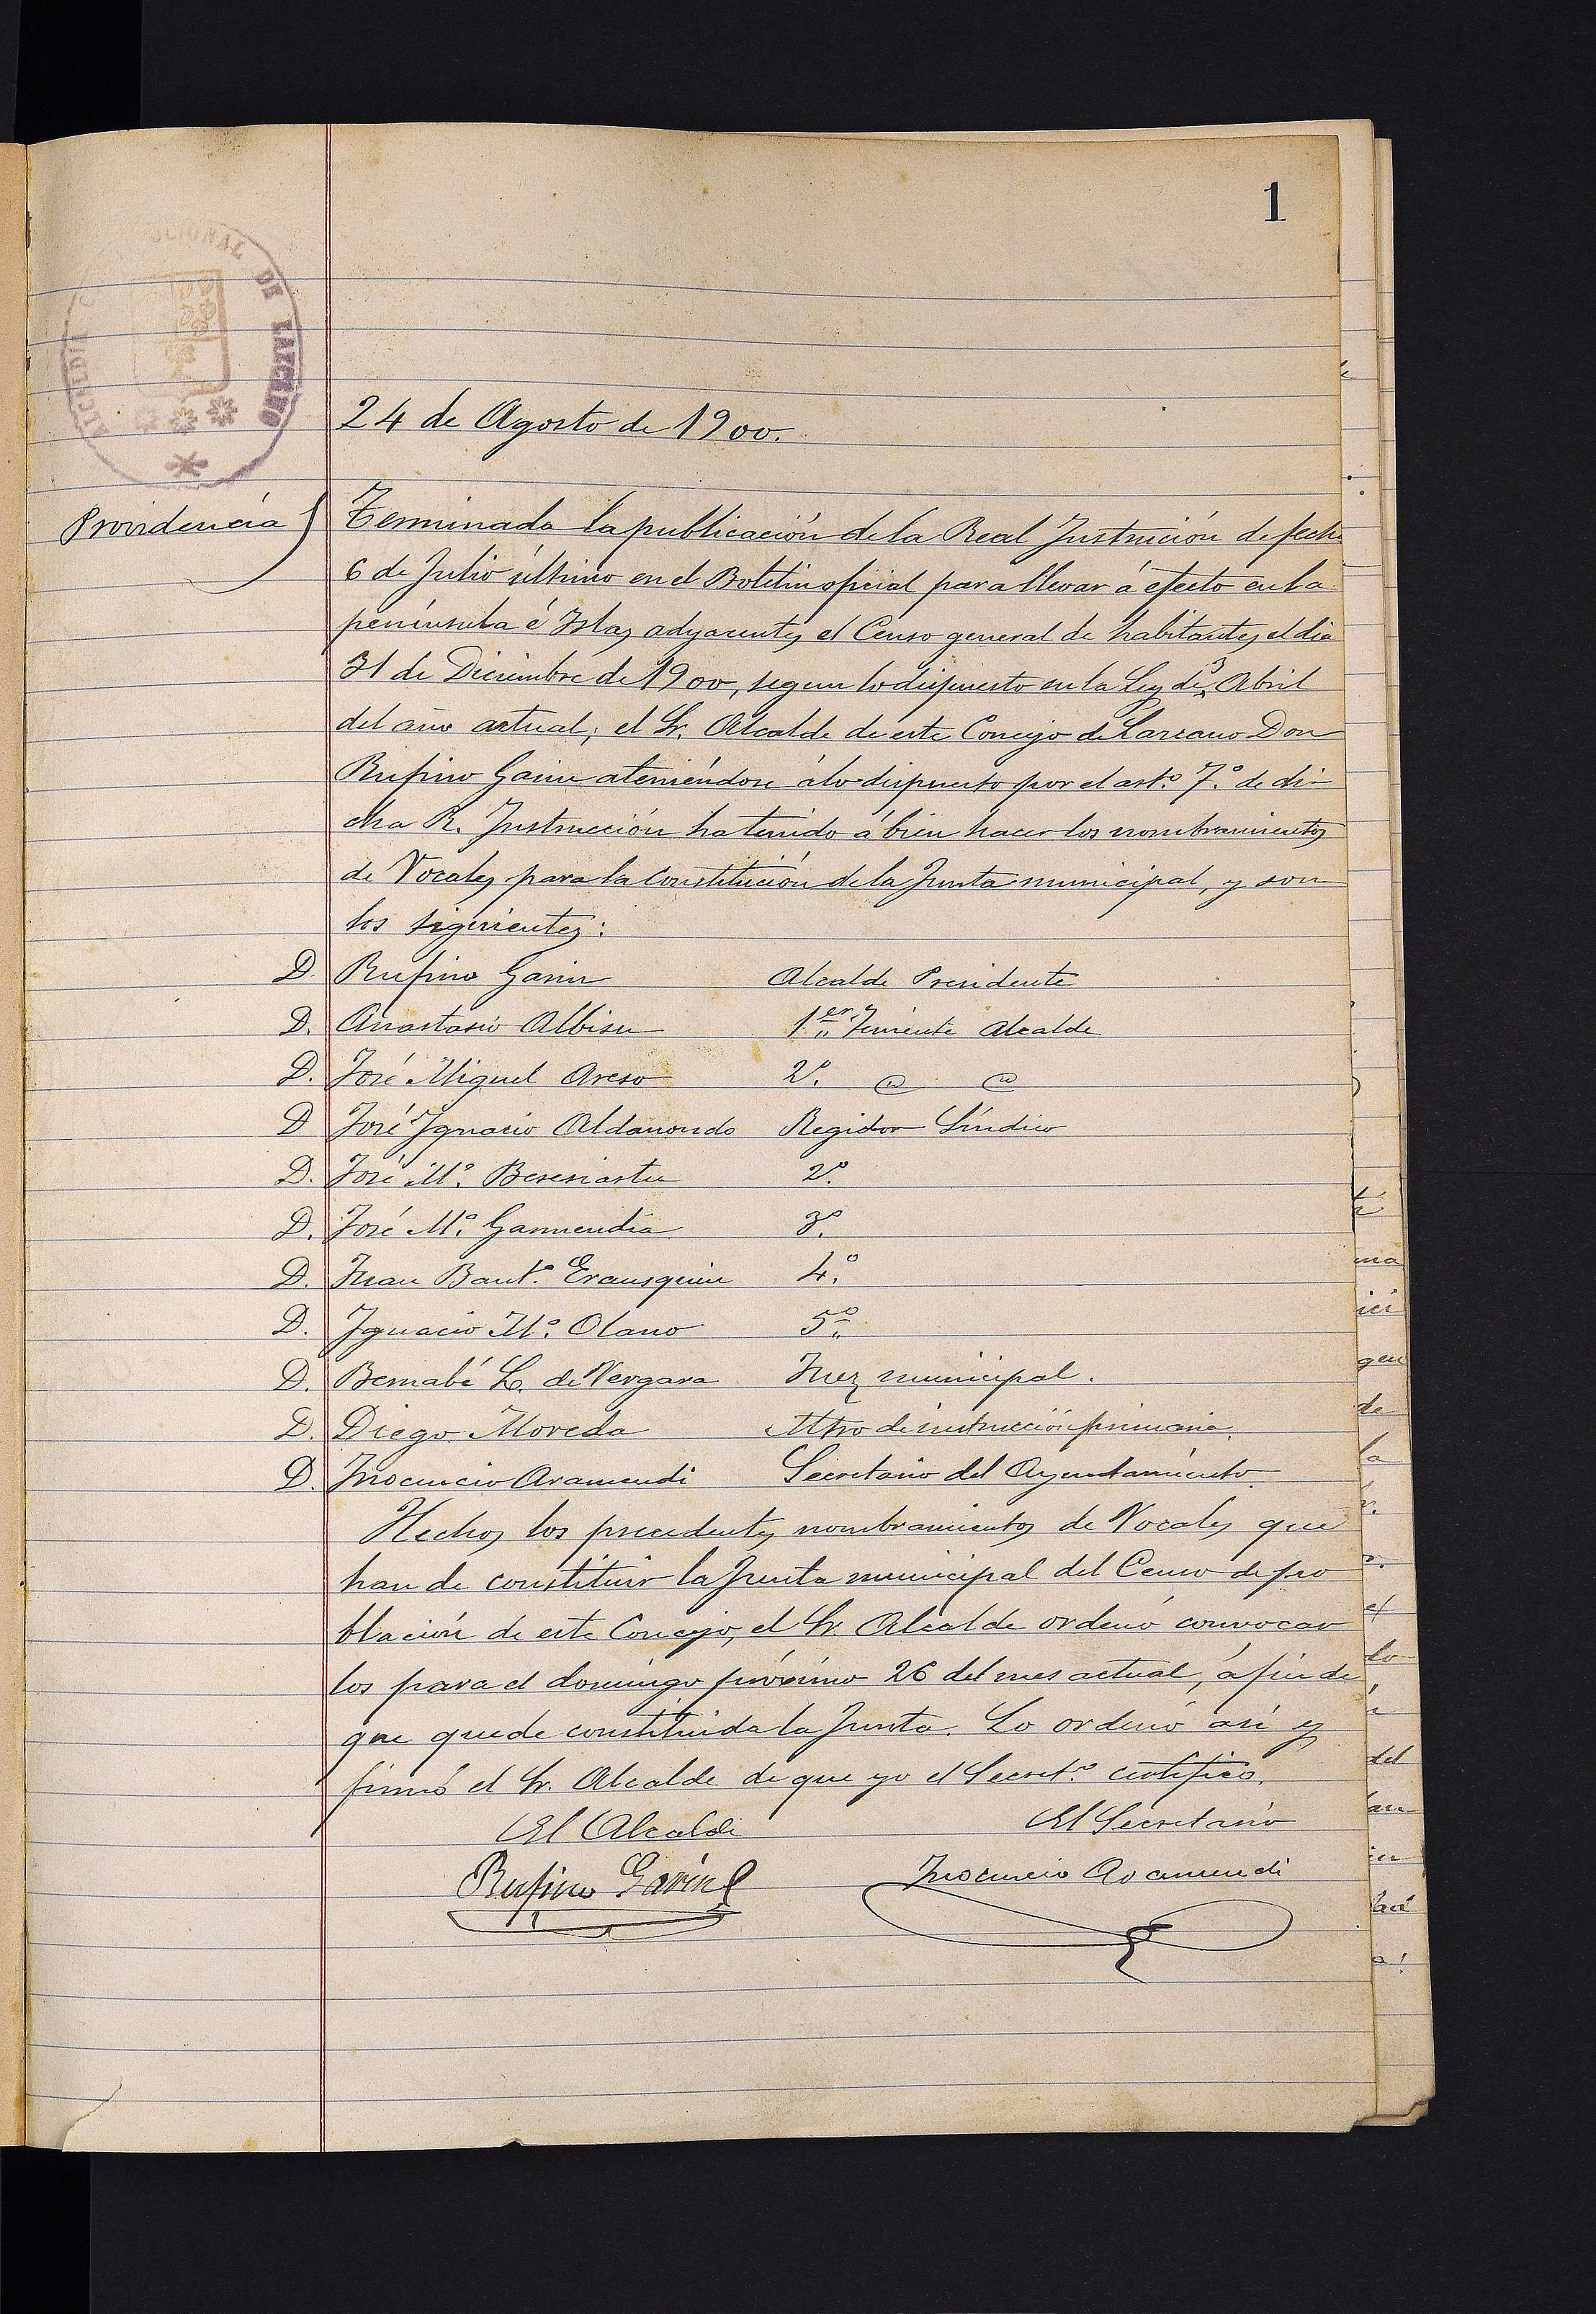 1
ALCALDIA CIONAL DE LAZCANO
24 de Agosto de 1900.
Providencia
Terminada la publicación de la Real Instrución de fecha
6 de Julio último en el Boletin oficial para llevar á efecto en la
península é Islas adyacentes el Censo general de habitantes el dia
31 de Diciembre de 1900, segun lo dispuesto en la Ley de 3 Abril
del año actual; el Sr. Alcalde de este Concejo de Lazcano Don
Rufino Garin ateniéndose á lo dispuesto por el art.º 7.º de di-
cha R. Instrucción ha tenido á bien hacer los nombramientos
de Vocales para la Constitución de la Junta municipal, y son
los siguientes:
D. Rufino Garin Alcalde Presidente
D. Anastasio Albisu 1er Teniente Alcalde
D. José Miguel Areso 2.º
D José Ignacio Aldanondo Regidor Síndico
D. José M.ª Beresiartu 2.º
D. José M.ª Garmendia 3.º
D. Juan Baut.ª Erausquin 4.º
D. Ignacio M.ª Olano 5.º
D. Bernabé L. de Vergara Juez municipal.
D. Diego Moreda Mtro de instrucción primaria.
D. Inocencio Aramendi Secretario del Ayuntamiento.
Hechos los precedentes nombramientos de Vocales que
han de constituir la Junta municipal del Censo de po
blación de este Concejo, el Sr. Alcalde ordenó convocar
los para el domingo próximo 26 del mes actual, á fin de
que quede constituida la Junta. Lo ordenó así y
firmó el Sr. Alcalde de que yo el Secret.º certifico.
El Alcalde El Secretario
Rufino Garin Inocencio Aramendi